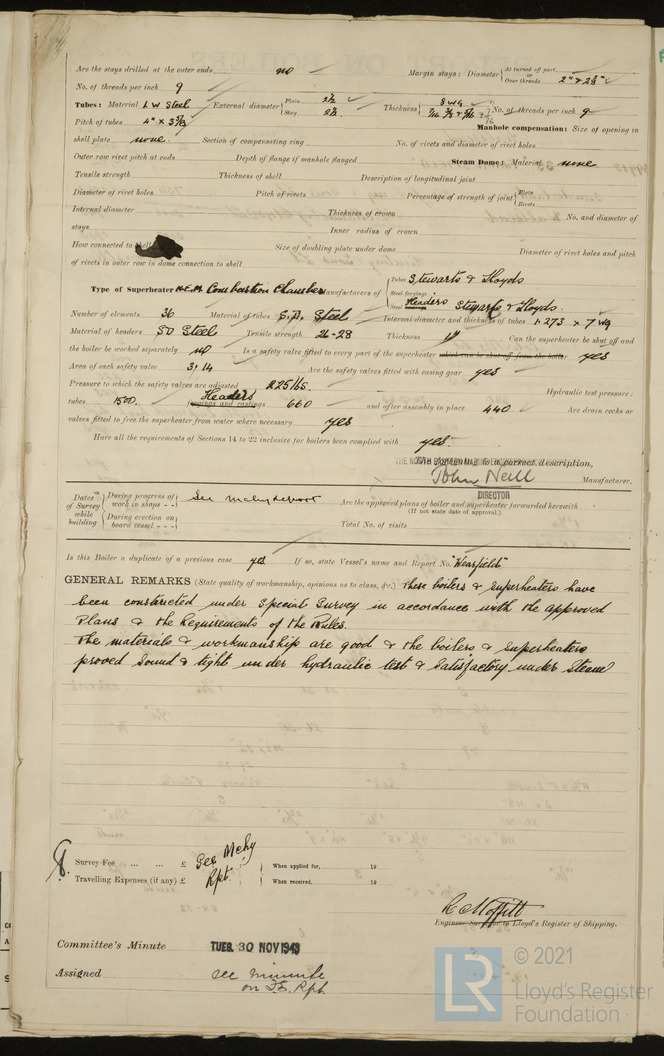 Are the stays drilled at the outer ends no Margin stays: Diameter { At turned off part, or Over threads 2" & 2⅝"
No. of threads per inch 9
Tubes: Material L W Steel External diameter { Plain 2½ Stay 2½ Thickness { 8 WG 5/16 No. of threads per inch 9
Pitch of tubes 4" x 3⅞ Manhole compensation: Size of opening in
shell plate none Section of compensating ring No. of rivets and diameter of rivet holes
Outer row rivet pitch at ends Depth of flange if manhole flanged Steam Dome: Material none
Tensile strength Thickness of shell Description of longitudinal joint
Diameter of rivet holes Pitch of rivets Percentage of strength of joint { Plate Rivets
Internal diameter Thickness of crown No. and diameter of
stays Inner radius of crown
How connected to shell Size of doubling plate under dome Diameter of rivet holes and pitch
of rivets in outer row in dome connection to shell
Type of Superheater N.E.M. Combustion Chamber Manufacturers of { Tubes Stewarts & Lloyds
Steel forgings
Steel Headers Stewarts & Lloyds
Number of elements 36 Material of tubes S.D. Steel Internal diameter and thickness of tubes 1.273 x 7 WG
Material of headers SD Steel Tensile strength 26-28 Thickness 1" Can the superheater be shut off and
the boiler be worked separately no Is a safety valve fitted to every part of the superheater which can be shut off from the boiler yes
Area of each safety valve 3.14 Are the safety valves fitted with easing gear yes
Pressure to which the safety valves are adjusted 225 lbs. Hydraulic test pressure:
tubes 1500. Headers forgings and castings 660 and after assembly in place 440 Are drain cocks or
valves fitted to free the superheater from water where necessary yes
Have all the requirements of Sections 14 to 22 inclusive for boilers been complied with yes.
The foregoing is a correct description,
John Neill Manufacturer.
DIRECTOR
Dates of Survey while building { During progress of work in shops - - See mchy report Are the approved plans of boiler and superheater forwarded herewith
(If not state date of approval.)
During erection on board vessel - - - Total No. of visits
Is this Boiler a duplicate of a previous case yes If so, state Vessel's name and Report No. "Wearfield"
GENERAL REMARKS (State quality of workmanship, opinions as to class, &c.) These boilers & superheaters have
been constructed under Special Survey in accordance with the approved
Plans & the Requirements of the Rules.
The materials & workmanship are good & the boilers & superheaters
proved sound & tight under hydraulic test & satisfactory under steam
Survey Fee ... ... £ See Mchy When applied for, 19
Travelling Expenses (if any) £ Rpt. When received, 19
R Moffitt
Engineer Surveyor to Lloyd's Register of Shipping.
Committee's Minute TUES. 30 NOV 1943
Assigned see minute
on F.E. Rpt.
LR © 2021
Lloyd's Register
Foundation